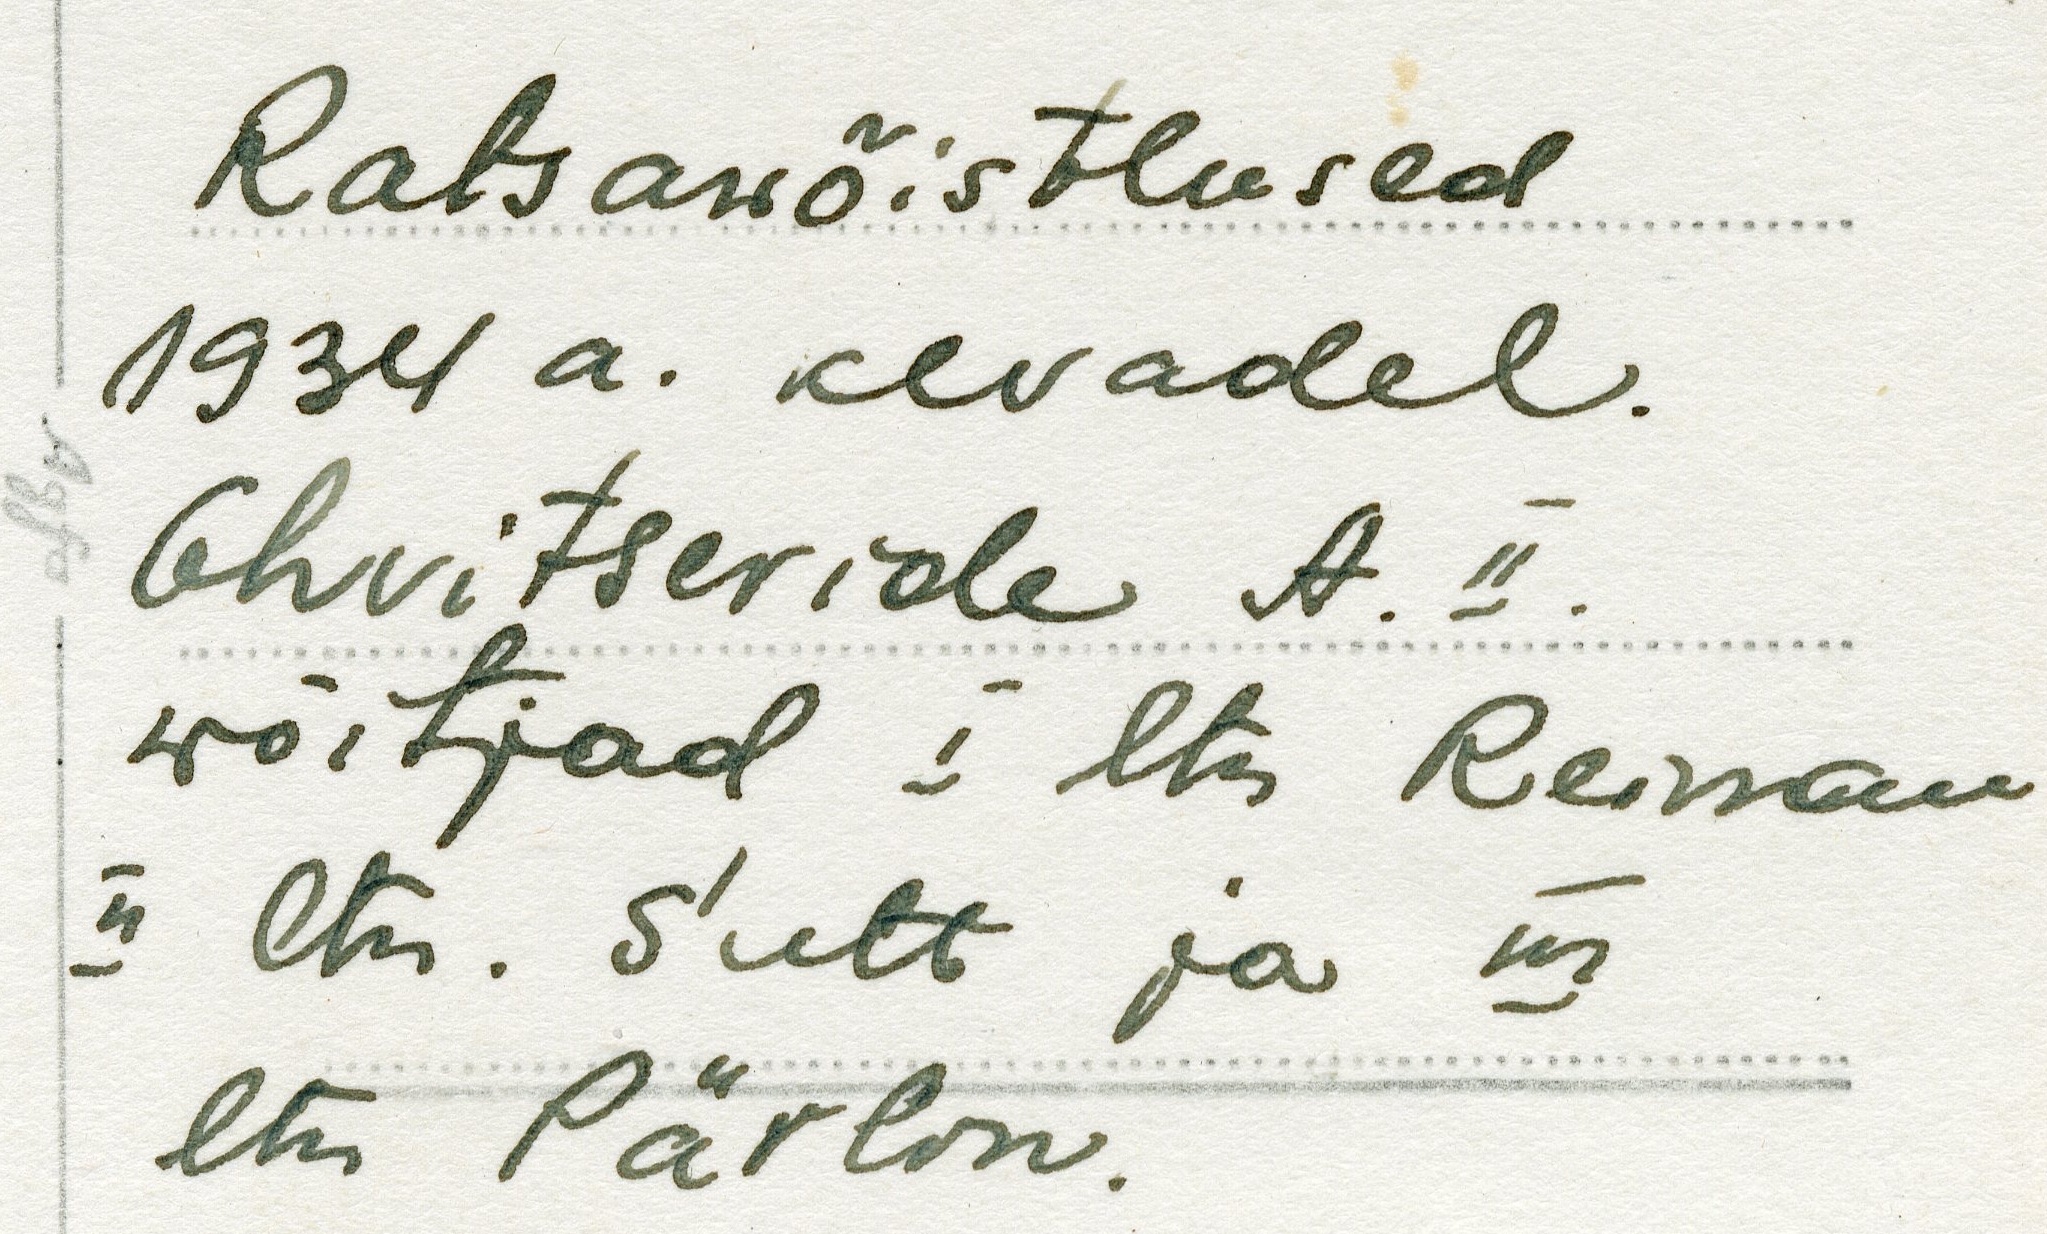 Ratsawõistlused
1934 a. kevadel.
Ohvitseride A. II.
wõitjad I ltn Reiman
II ltn. Sutt ja III
ltn Pärlon.